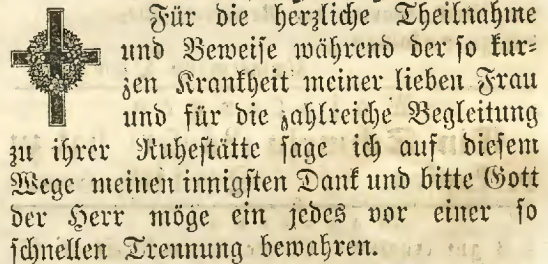 Für die herzliche Theilnahme
und Beweise während der so kur-
zen Krankheit meiner lieben Frau
und für die zahlreiche Begleitung
zu ihrer Ruhestätte sage ich auf diesem
Wege meinen innigsten Dank und bitte Gott
der Herr möge ein jedes vor einer so
schnellen Trennung bewahren.